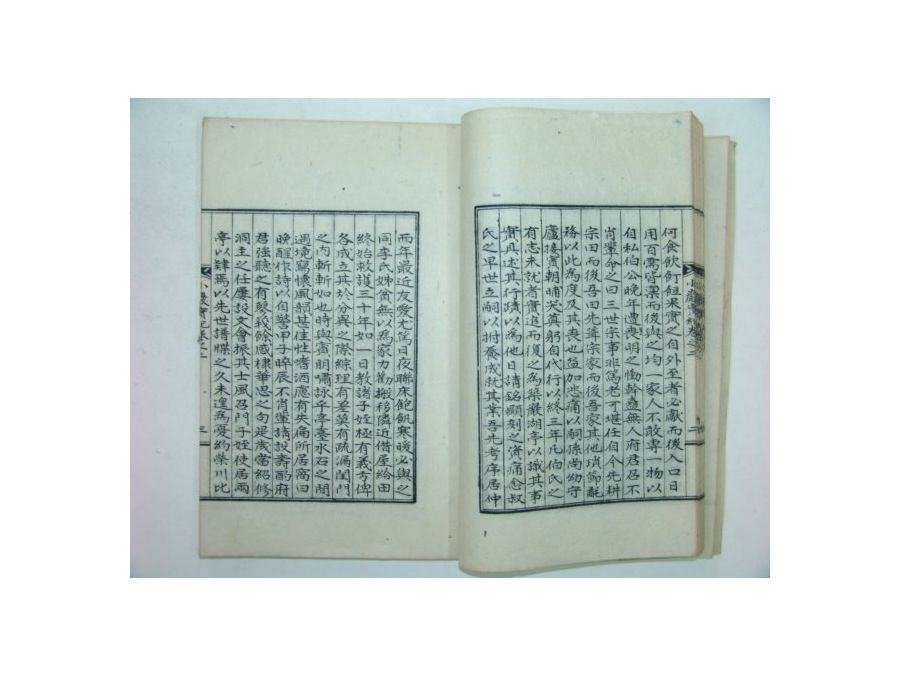 何食飮飣餖果實之自外至者必獻而後入口日
用百需皆稟而後與之均一家人不敢專一物以
自私伯公晩年遭喪明之慟幹蠱無人府君召不
肖輩命之曰三世宗事非篤老可堪任自今先耕
宗田而後吾田先葺宗家而後吾家其他瑣節
務以此爲度及其喪也益加悲痛以嗣孫尚幼守
廬接賓朝晡哭奠躬自代行以終三年凡伯氏之
有志未就者實追而復之爲築巖湖亭以識其事
實再述其行蹟以爲他日請銘顯刻之資痛念叔
氏之早世立嗣以拊養成就其業吾先考序居仲
小巖實紀卷之二
二
而年最近友愛尤篤日夜聯床飽飢寒暖必與之
同李氏姊貧無以爲家力勸搬移隣近借屋給田
終始救護三十年如一日敎諸子姪極有義方俾
各成立其於分異之際綜理有差莫有疏漏閨門
之內斬斬如也時與賓朋嘯詠乎亭臺水石之間
遇境寫懷風韻甚佳性嗜酒應有失扁所居窩曰
晩醒作詩以自警甲子晬辰不肖輩請設壽酌府
君强聽之有蓼莪餘感棣華思之句是歲當紹修
洞主之任屢設文會振其士風召門子姪使居兩
亭以肄焉以先世譜牒之久未遑爲憂約榮川比
小巖實紀卷之二
三